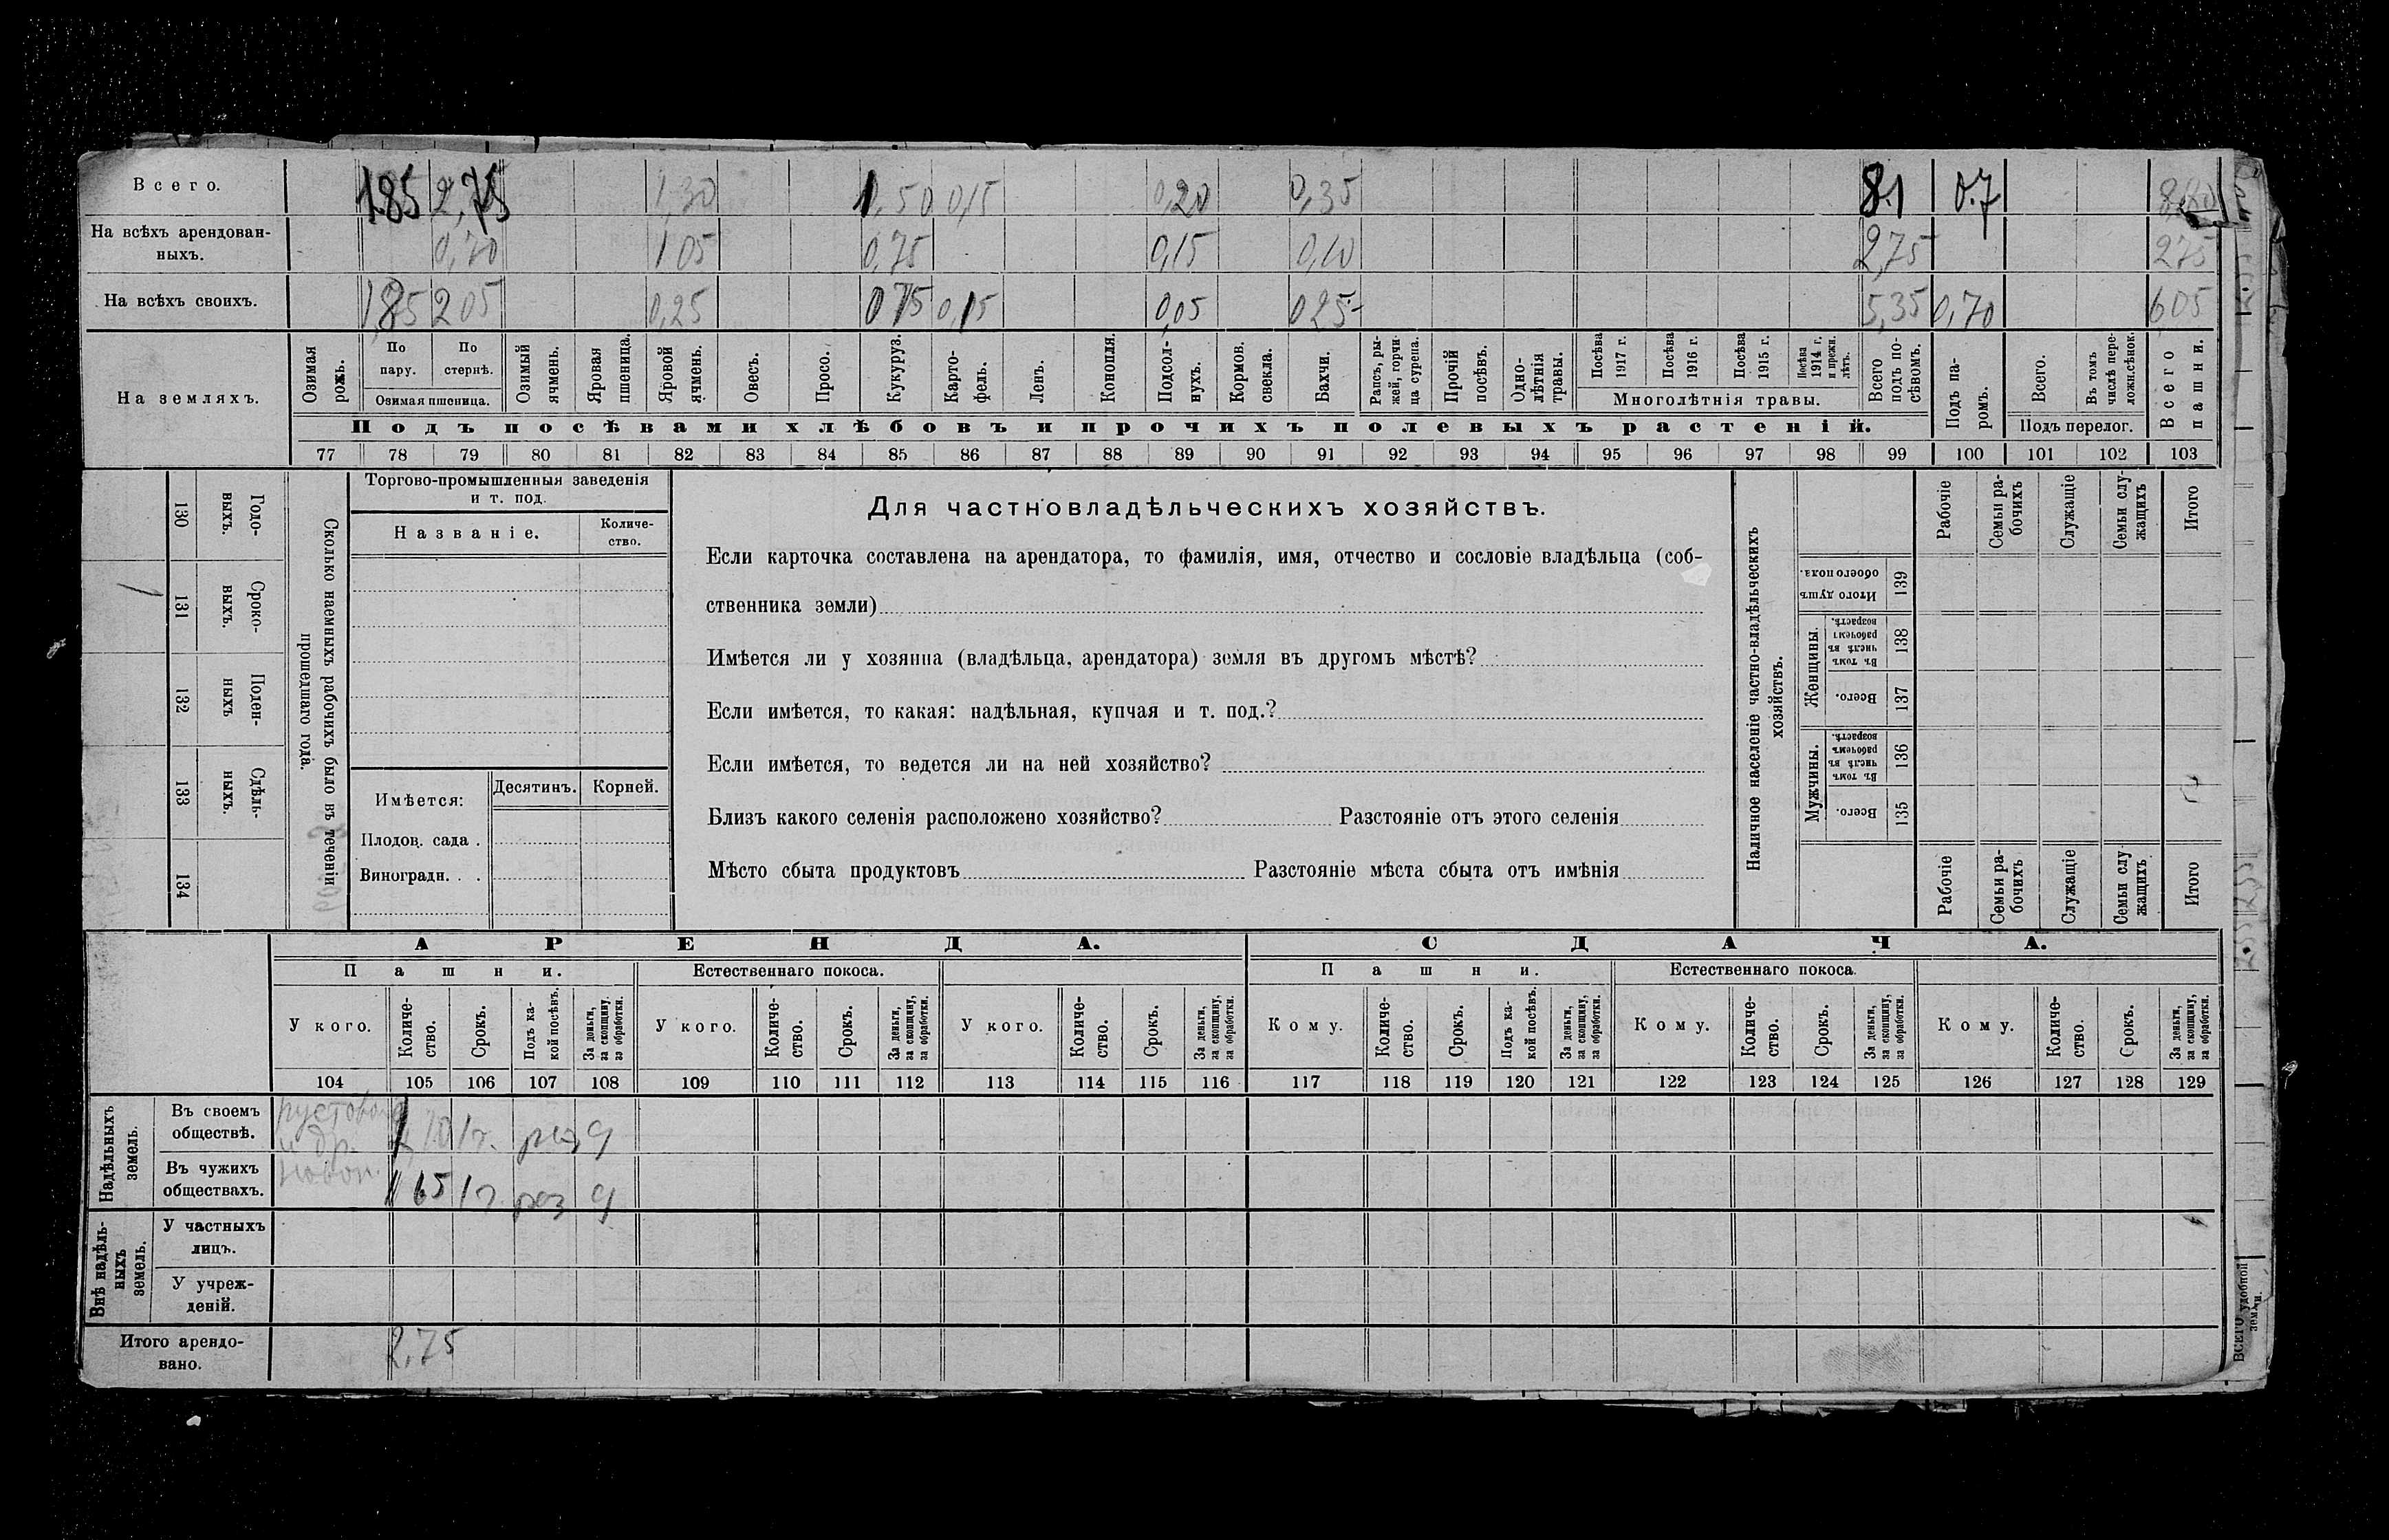 Всего. 1,85 2,75 1,30 1,50 0,15 0,20 0,35 8.1 0.7
На всѣхъ арендован-
ныхъ. 0,70 1 05 0,75 0,15 0,10 2,75 275
На всѣхъ своихъ. 1,85 205 0,25 075 0,15 0,05 025 5,35 0,70 605
На земляхъ.
Озимая рожь.
По пару.
По стернѣ.
Озимая пшеница.
Озимый ячмень.
Яровая пшеница.
Яровой ячмень.
Овесъ.
Просо.
Кукуруз.
Карто-
фель.
Ленъ.
Конопля.
Подсол-
нухъ.
Кормов. свекла.
Бахчи.
Рапсъ, ры-
жей, горчи-
ца сурепа.
Прочій посѣвъ.
Одно-
лѣтнія травы.
Посѣва 1917 г.
Посѣва 1916 г.
Посѣва 1915 г.
Посѣва 1914 г. и прежн. лѣтъ.
Многолѣтнія травы.
Всего подъ по-
сѣвомъ.
Подъ па-
ромъ.
Всего.
Въ томъ числѣ пере-
ложн.сѣнок.
Подъ перелог.
Всего пашни.
Подъ посѣвами хлѣбовъ и прочихъ полевыхъ растеній.
77 78 79 80 81 82 83 84 85 86 87 88 89 90 91 92 93 94 95 96 97 98 99 100 101 102 103
130 Годо-
выхъ.
131 Сроко-
выхъ.
132 Поден-
ныхъ
133 Сдѣль-
ныхъ.
134
Сколько наемныхъ рабочихъ было въ теченіи
прошедшаго года.
Торгово-промышленныя заведенія
и т. под.
Названіе.
Количе-
ство.
Имѣется:
Десятинъ.
Корней.
Плодов. сада .
Виноградн. . .
Для частновладѣльческихъ хозяйствъ.
Если карточка составлена на арендатора, то фамилія, имя, отчество и сословіе владѣльца (соб-
ственника земли)
Имѣется ли у хозяина (владѣльца, арендатора) земля въ другомъ мѣстѣ?
Если имѣется, то какая: надѣльная, купчая и т. под.?
Если имѣется, то ведется ли на ней хозяйство?
Близъ какого селенія расположено хозяйство? Разстояніе отъ этого селенія
Мѣсто сбыта продуктовъ Разстояніе мѣста сбыта отъ имѣнія
Наличное населеніе частно-владѣльческихъ
хозяйствъ.
Рабочіе
Семьи ра-
бочихъ
Служащіе
Семьи слу-
жащихъ
Итого
Итого душъ обоего пола. 139
Женщины.
Въ томъ числѣ въ рабочемъ возрастѣ. 138
Всего. 137
Мужчины.
Въ томъ числѣ въ рабочемъ возрастѣ. 136
Всего. 135
Рабочіе
Семьи ра-
бочихъ
Служащіе
Семьи слу
жащихъ
Итого
АРЕНДА. СДАЧА.
Пашни. Естественнаго покоса. Пашни. Естественнаго покоса.
У кого. Количе-
ство. Срокъ. Подъ ка-
кой посѣвъ. За деньги, за скопщину, за обработки.
У кого. Количе-
ство. Срокъ. За деньги, за скопщину, за обработки.
У кого. Количе-
ство. Срокъ. За деньги, за скопщину, за обработки.
Кому. Количе-
ство. Срокъ. Подъ ка-
кой посѣвъ. За деньги, за скопщину, за обработки.
Кому. Количе-
ство. Срокъ. За деньги, за скопщину, за обработки.
Кому. Количе-
ство. Срокъ. За деньги, за скопщину, за обработки.
104 105 106 107 108 109 110 111 112 113 114 115 116 117 118 119 120 121 122 123 124 125 126 127 128 129
Надѣльныхъ земель.
Въ своемъ
обществѣ. и др. 1г.
Въ чужихъ
обществахъ. 1 65 1г. раз д
Внѣ надѣль-
ныхъ земель.
У частныхъ
лицъ.
У учреж-
деній.
Итого арендо-
вано. 2,75
ВСЕГО удобной земли.